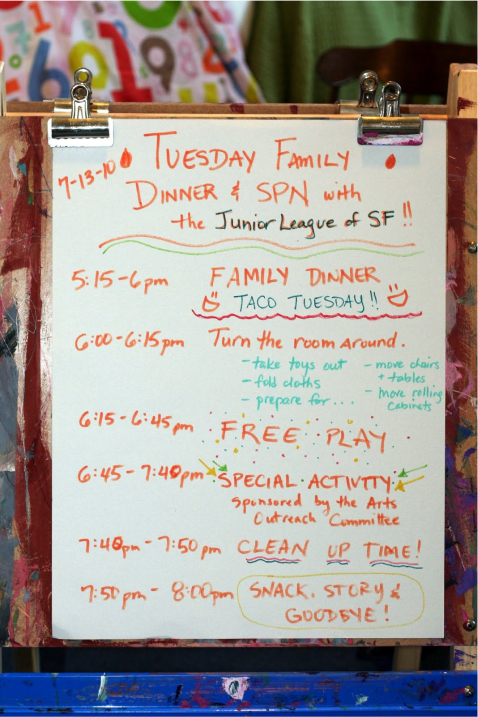 7-13-10
TUESDAY FAMILY
DINNER & SPN with
the Junior League of SF!!
5:15-6pm FAMILY DINNER
TACO TUESDAY!!
6:00-6:15pm Turn the room around.
- take toys out - move chairs
+ tables
- fold cloths - move rolling
cabinets
- prepare for...
6:15-6:45pm FREE PLAY
6:45-7:40pm SPECIAL ACTIVITY
Sponsored by the Arts
Outreach Committee
7:40pm-7:50pm CLEAN UP TIME!
7:50pm-8:00pm SNACK, STORY &
GOODBYE!